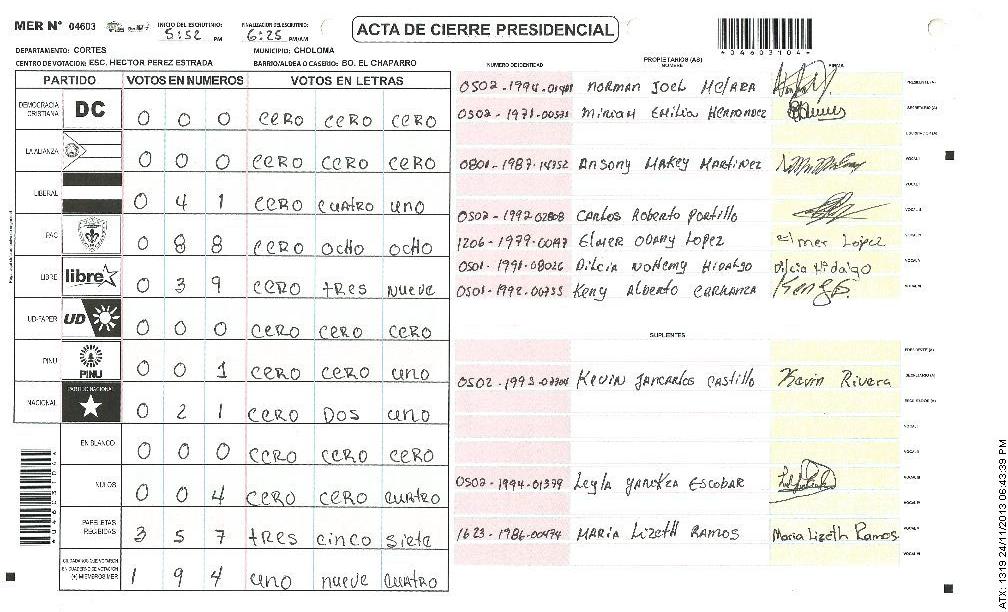 MER N° 04603 INICIO DEL ESCRUTINIO: 5:52 PM FINALIZACION DEL ESCRUTINIO: 6:25 PM/AM
ACTA DE CIERRE PRESIDENCIAL
04603104
DEPARTAMENTO: CORTES MUNICIPIO: CHOLOMA
CENTRO DE VOTACION: ESC. HECTOR PEREZ ESTRADA BARRIO/ALDEA O CASERIO: BO. EL CHAPARRO
PARTIDO VOTOS EN NUMEROS VOTOS EN LETRAS
DEMOCRACIA CRISTIANA DC 0 0 0 CERO CERO CERO
LA ALIANZA 0 0 0 CERO CERO CERO
LIBERAL 0 4 1 CERO CUATRO UNO
PAC 0 8 8 CERO OCHO OCHO
LIBRE libre 0 3 9 CERO TRES NUEVE
UD-FAPER UD 0 0 0 CERO CERO CERO
PINU PINU 0 0 1 CERO CERO UNO
NACIONAL PARTIDO NACIONAL 0 2 1 CERO DOS UNO
EN BLANCO 0 0 0 CERO CERO CERO
NULOS 0 0 4 CERO CERO CUATRO
PAPELETAS RECIBIDAS 3 5 7 TRES CINCO SIETE
CIUDADANOS QUE VOTARON EN CUADERNO DE VOTACION (+) MIEMBROS MER 1 9 4 UNO NUEVE CUATRO
PROPIETARIOS (AS)
NUMERO DE IDENTIDAD NOMBRE FIRMA
NORMAN JOEL MEJARA PRESIDENTE (A)
0502-1971-00531 Miriam Emilia Hernandez SECRETARIO (A)
ESCRUTADOR (A)
0801-1987-14352 Ansony Makey Martinez VOCAL I
0502-1992-02808 Carlos Roberto Portillo
1206-1979-00147 ELMER ODANY LOPEZ Elmer López
0501-1991-08026 Dilcia Nohemy Hidalgo Dilcia Hidalgo
0501-1992-00735 Keny Alberto CARRANZA
SUPLENTES
PRESIDENTE (A)
Kevin Jancarlos Castillo Kevin Rivera SECRETARIO (A)
ESCRUTADOR (A)
0502-1994-01379 Leyla ESCOBAR
1623-1986-00474 MARIA Lizeth RAMOS Maria Lizeth Ramos
ATX: 1319 24/11/2013 06:43:39 PM